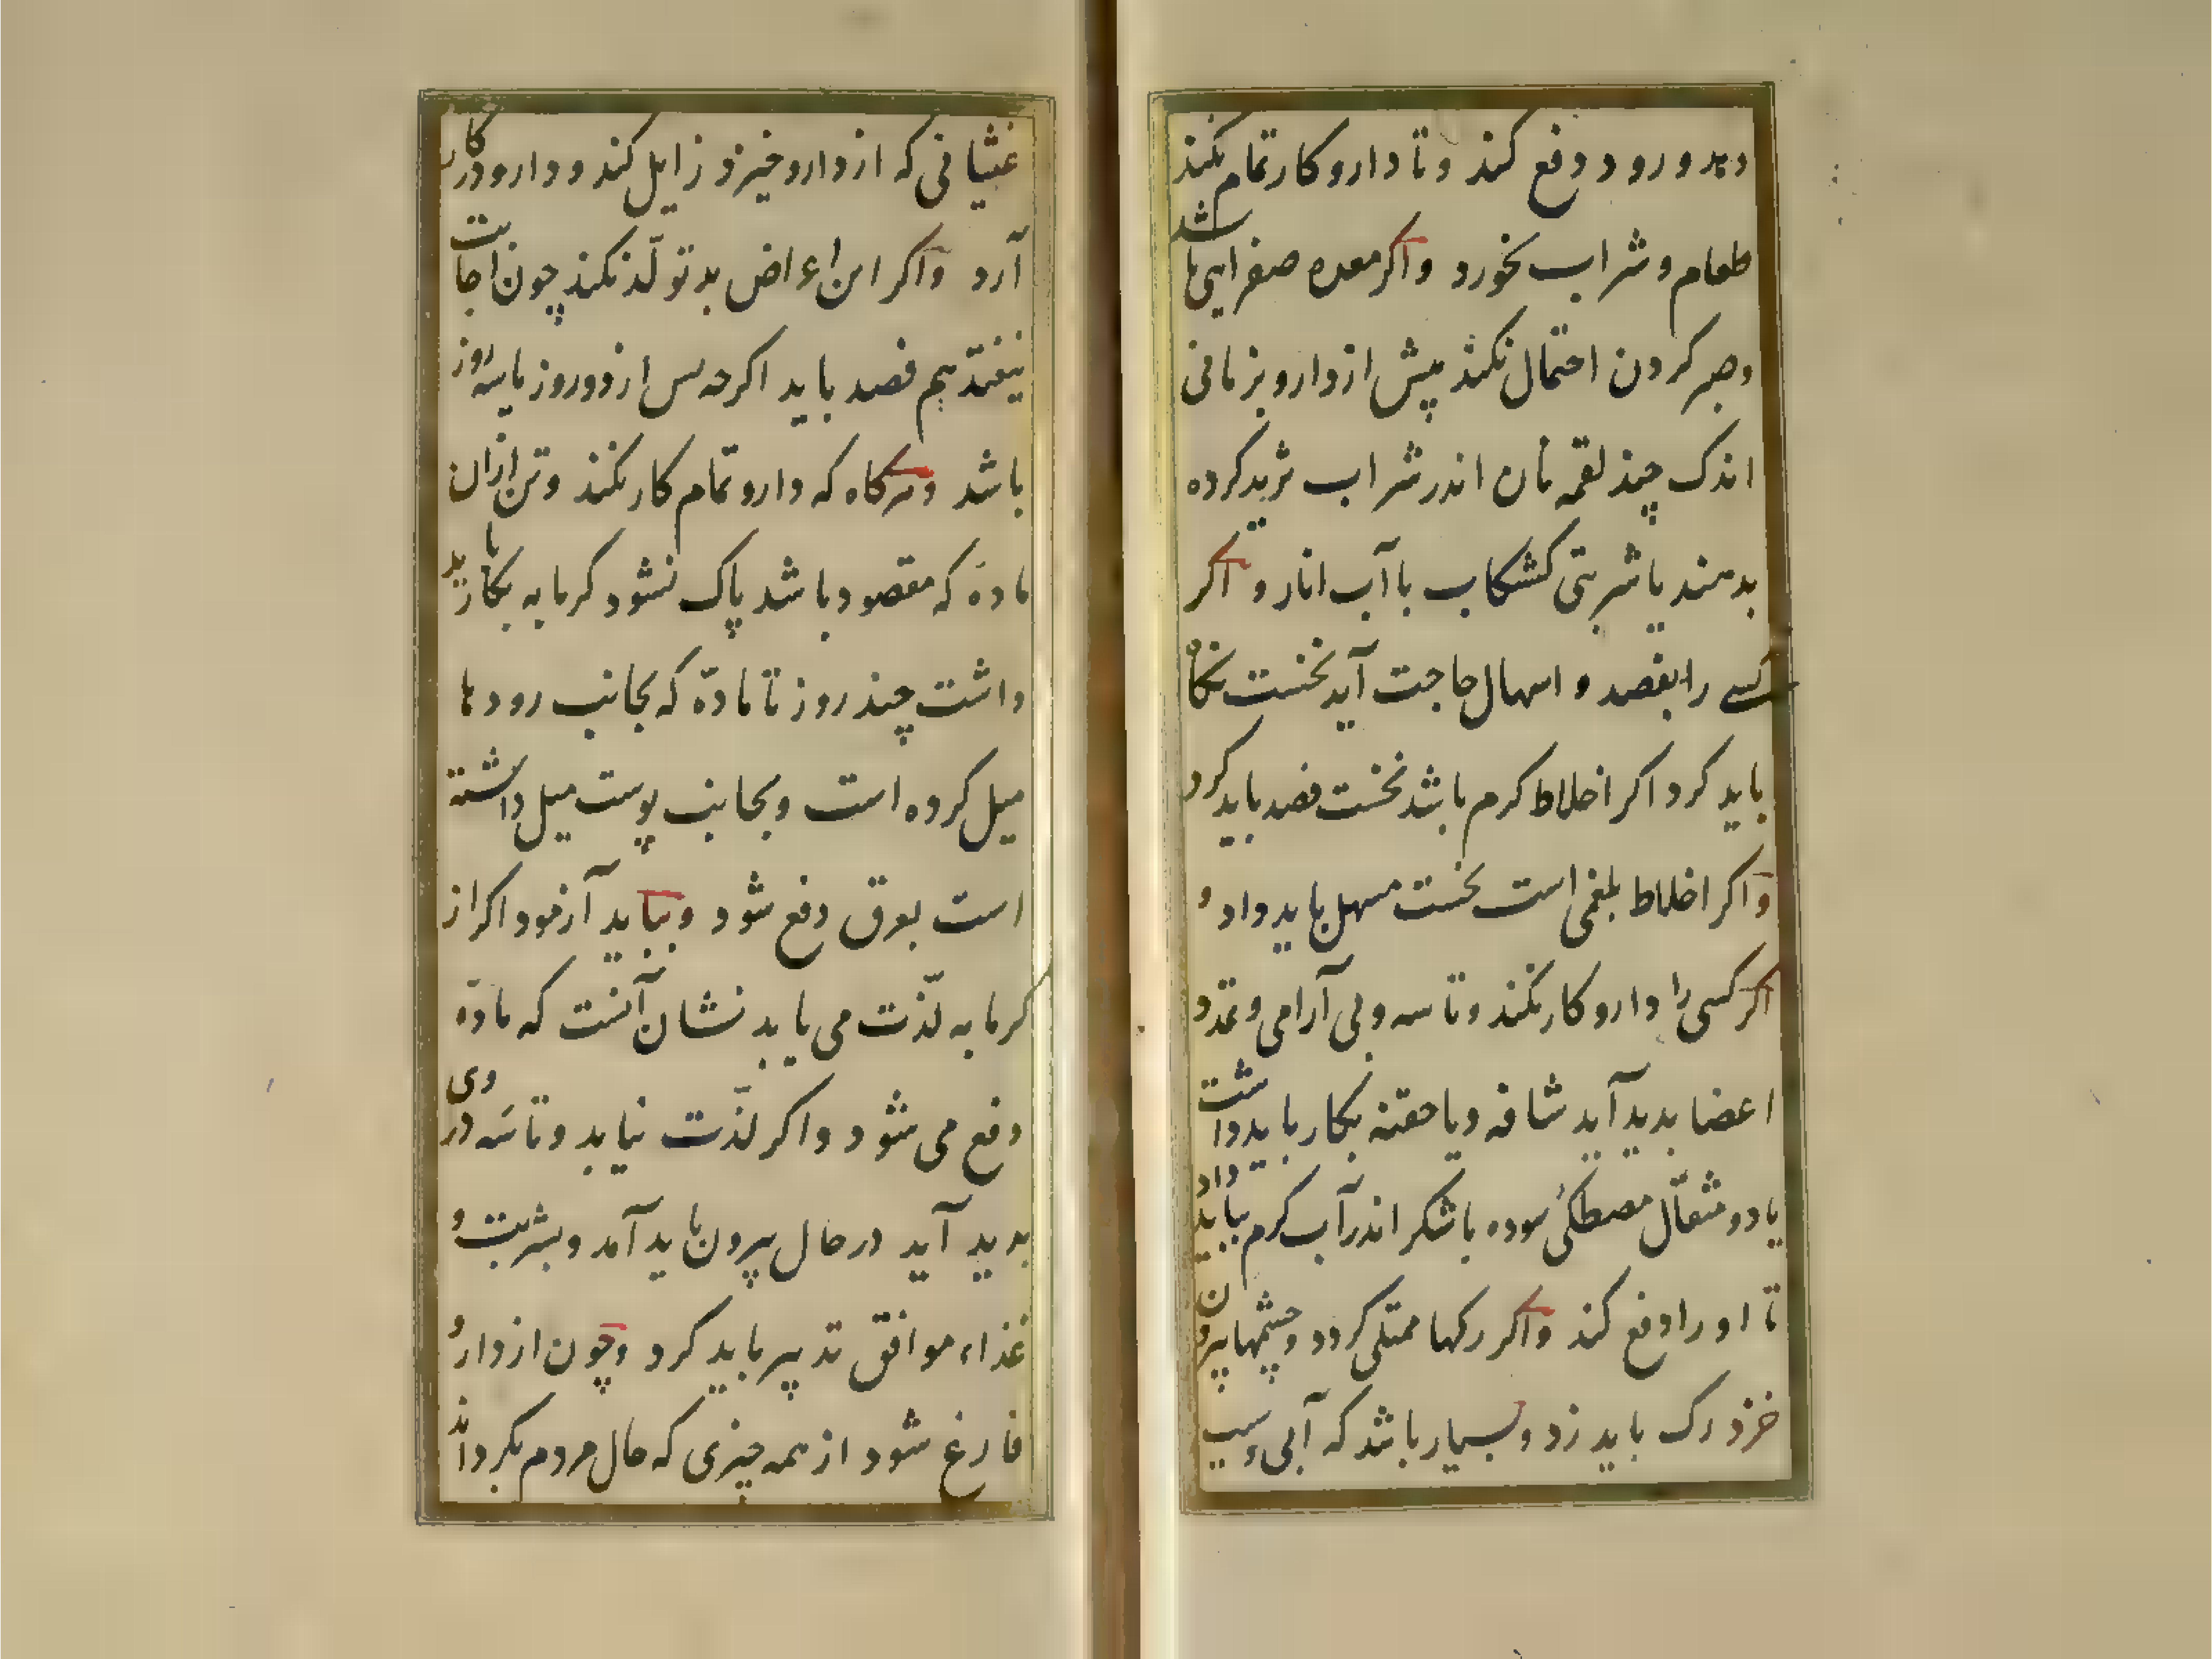 دهد و رود و دفع کند و تا دارو کار تمام نکند
طعام و شراب نخورد و اکر معده صفرایی باشد
و صبر کردن احتمال نکند پیش از دارو بزمانی
اندک چند لقمه نان اندر شراب ثرید کرده
بدهند یا شربتی کشکاب با آب انار و اکر
کسی را بفصد و اسهال حاجت آید نخست نکاه
باید کرد اکر اخلاط کرم باشد نخست فصد باید کرد
و اکر اخلاط بلغمی است نخست مسهل باید داد و
اکر کسی را دارو کار نکند و تاسه و بی آرامی و تمدد
اعضا بدید آید شافه و یا حقنه بکار باید داشت
یا دو مثقال مصطکی سوده با شکر اندر آب کرم بباید داد
تا او را دفع کند و اکر رکها ممتلی کردد و چشمها بیرون
خزد رک باید زد و بسیار باشد که آبی و سیب
غثیانی که از دارو خیزد زایل کند و دارو در کار
آرد و اکر این اعراض بد تولّد نکند چون اجابت
نیفتد هم فصد باید اکرچه پس از دو روز یا سه روز
باشد و هرکاه که دارو تمام کار نکند و تن ازان
مادهٔ که مقصود باشد پاک نشود کرمابه بکار باید
داشت چند روز تا مادّهٔ که بجانب رودها
میل کرده است و بجانب پوست میل داشته
است بعرق دفع شود و بباید آزمود اکر از
کرمابه لذّت می یابد نشان آنست که مادّه
دفع می شود و اکر لذّت نیابد و تاسه در وی
بدید آید در حال بیرون باید آمد و بشربت و
غذاء موافق تدبیر باید کرد و چون از دارو
فارغ شود از همه چیزی که حال مردم بکرداند